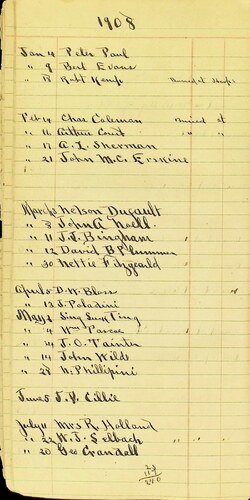 1908
Jan 4 Peter Paul
" 9 Bert Evans
" 18 Robt Kemp Burned at Shops
Feb 14 Chas Coleman Burned at
" 16 Arthur Court " "
" 17 A. L. Sherman
" 21 John McErskine
March Nelson Dugault
" 8 John A Noell
" 11 J. J. Bingham "
" 12 David B Plummer
" 30 Nettie Fitzgearld "
April 8 D. W. Bloss "
" 13 S. Paladini
May 2 Sing Sung Ting
" 4 Wm Pascoe "
" 4 J. O. Tainter
" 14 John Wilds
" 28 N. Phillipini
June 5 J. V. Lillie
July 11 Mrs R. Holland
" 22 W. J. Selbach " " "
" 20 Geo Crandall
240